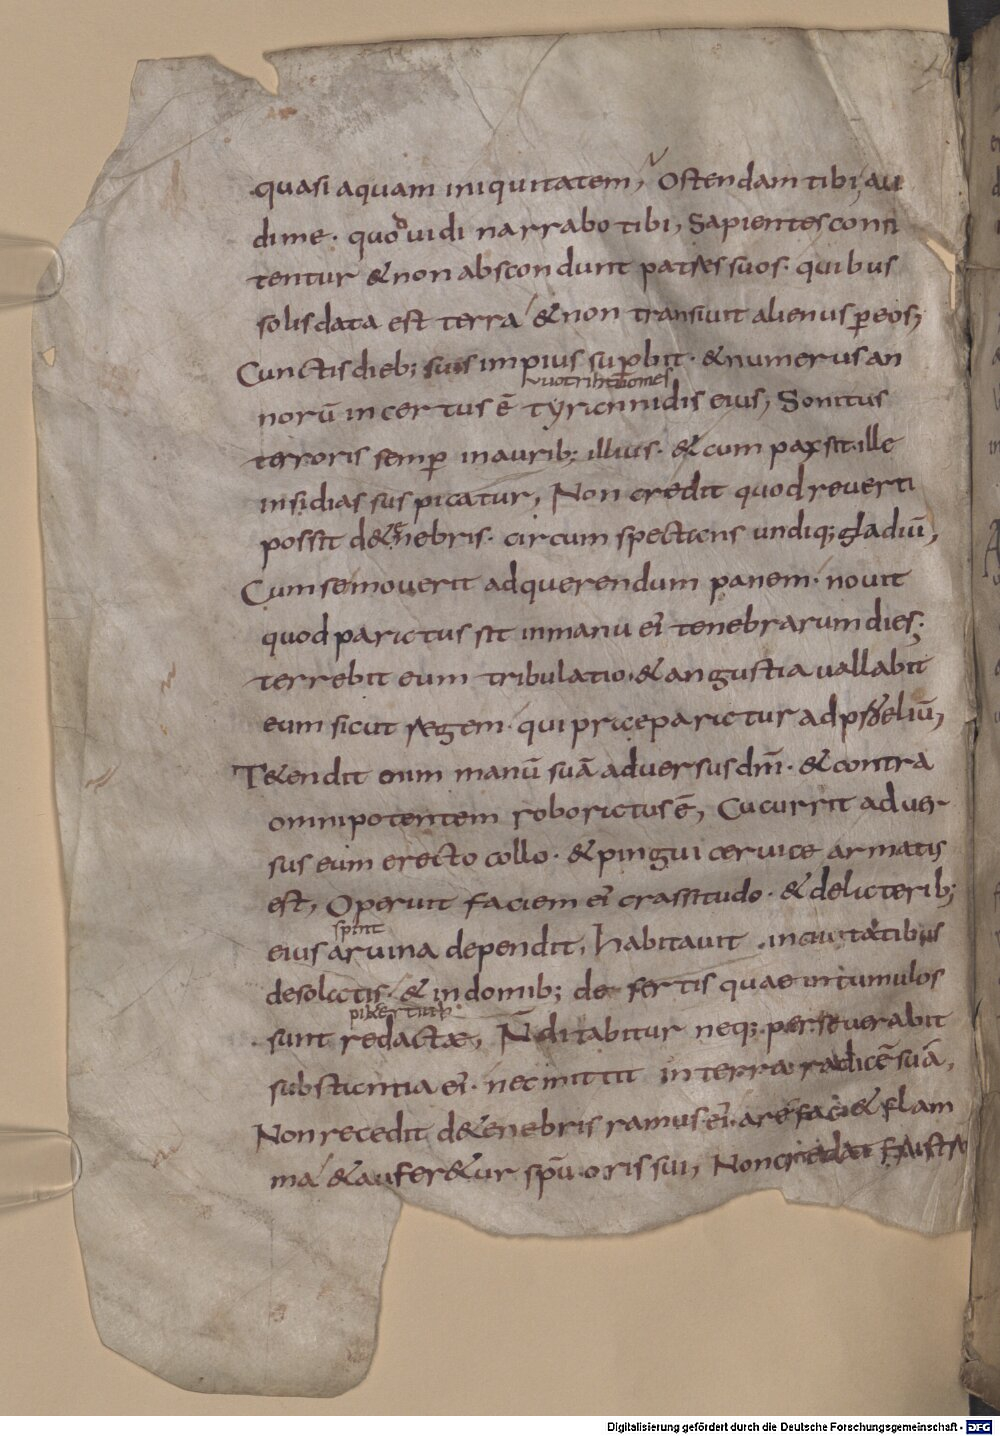 quasi aquam iniquitatem, Ostendam tibi, au
di me · quod uidi narrabo tibi, Sapientes confi
tentur & non abscondunt patres suos · quibus
solis data est terra & non transiuit alienus per eos;
Cunctis dieb; suis impius superbit · & numerus an
norū incertus ē tyrannidis eius, Sonitus
terroris semper in aurib; illius · & cum pax sit ille
insidias suspicatur, Non credit quod reuerti
possit de tenebris · circumspectans undiq; gladiū,
Cum se mouerit ad querendum panem · nouit
quod paratus sit in manu ei tenebrarum dies;
terrebit eum tribulatio · & angustia uallabit
eum sicut regem · qui preparatur ad pręliū,
T&endit enim manū suā aduersus dm̄ · & contra
omnipotentem roboratus ē, Cucurrit aduer
sus eum erecto collo · & pingui ceruice armatus
est, Operuit faciem ei crassitudo · & de laterib;
spint
eius aruina dependit, habitauit in ciuitatibus
desolatis · & in domib; desertis quae in tumulos
sunt redactae, N̄ ditabitur neq; perseuerabit
substantia ei · nec mittit in terra radicē suā,
Non recedit de tenebris ramus ei · arefaci& flam
ma & aufer&ur spū oris sui, Non credat frustra
Digitalisierung gefördert durch die Deutsche Forschungsgemeinschaft - DFG